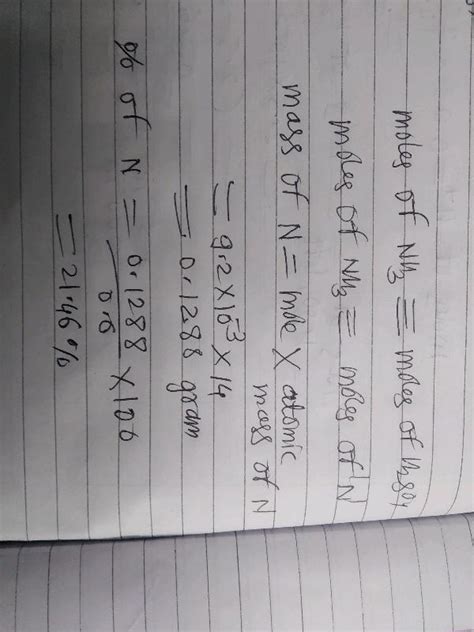 moles of NH3 = moles of H2SO4
moles of NH3 = moles of N
mass of N = mole X atomic
mass of N
= 9.2 X 10-3 X 14
= 0.1288 gram
% of N = 0.1288 X 100
0.6
= 21.46 %